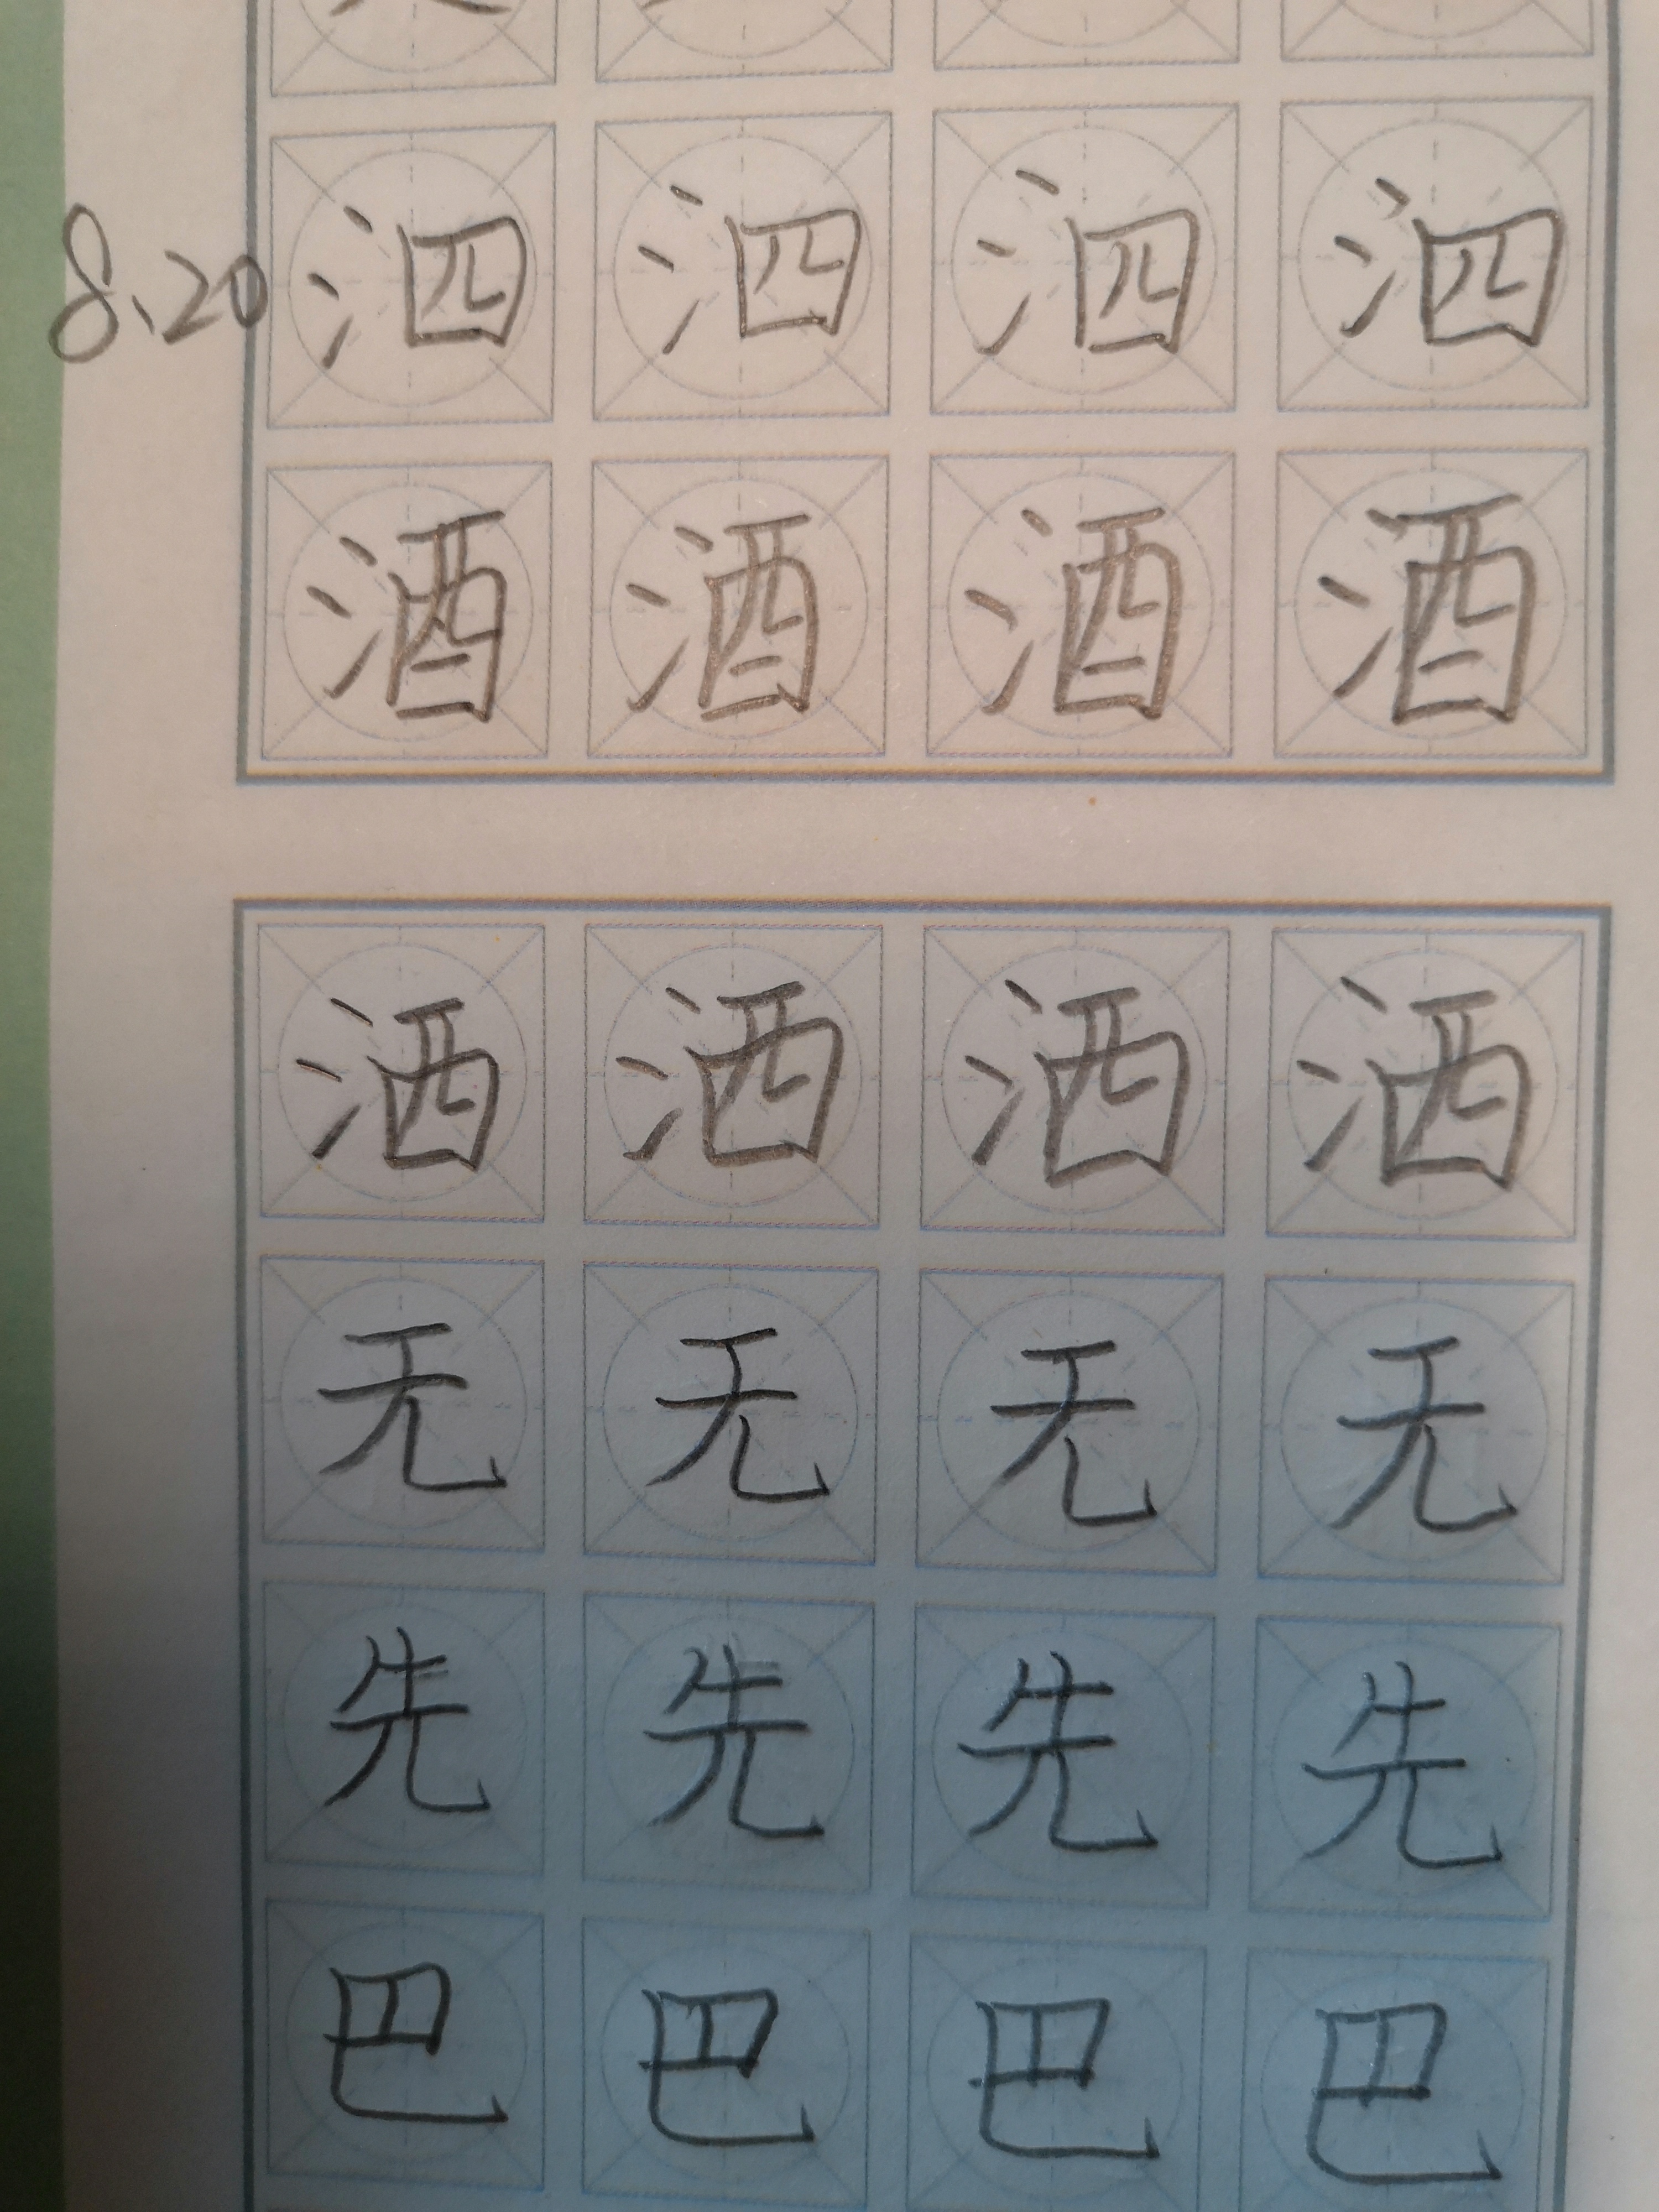 8.20 泗 泗 泗 泗
酒 酒 酒 酒
洒 洒 洒 洒
无 无 无 无
先 先 先 先
巴 巴 巴 巴